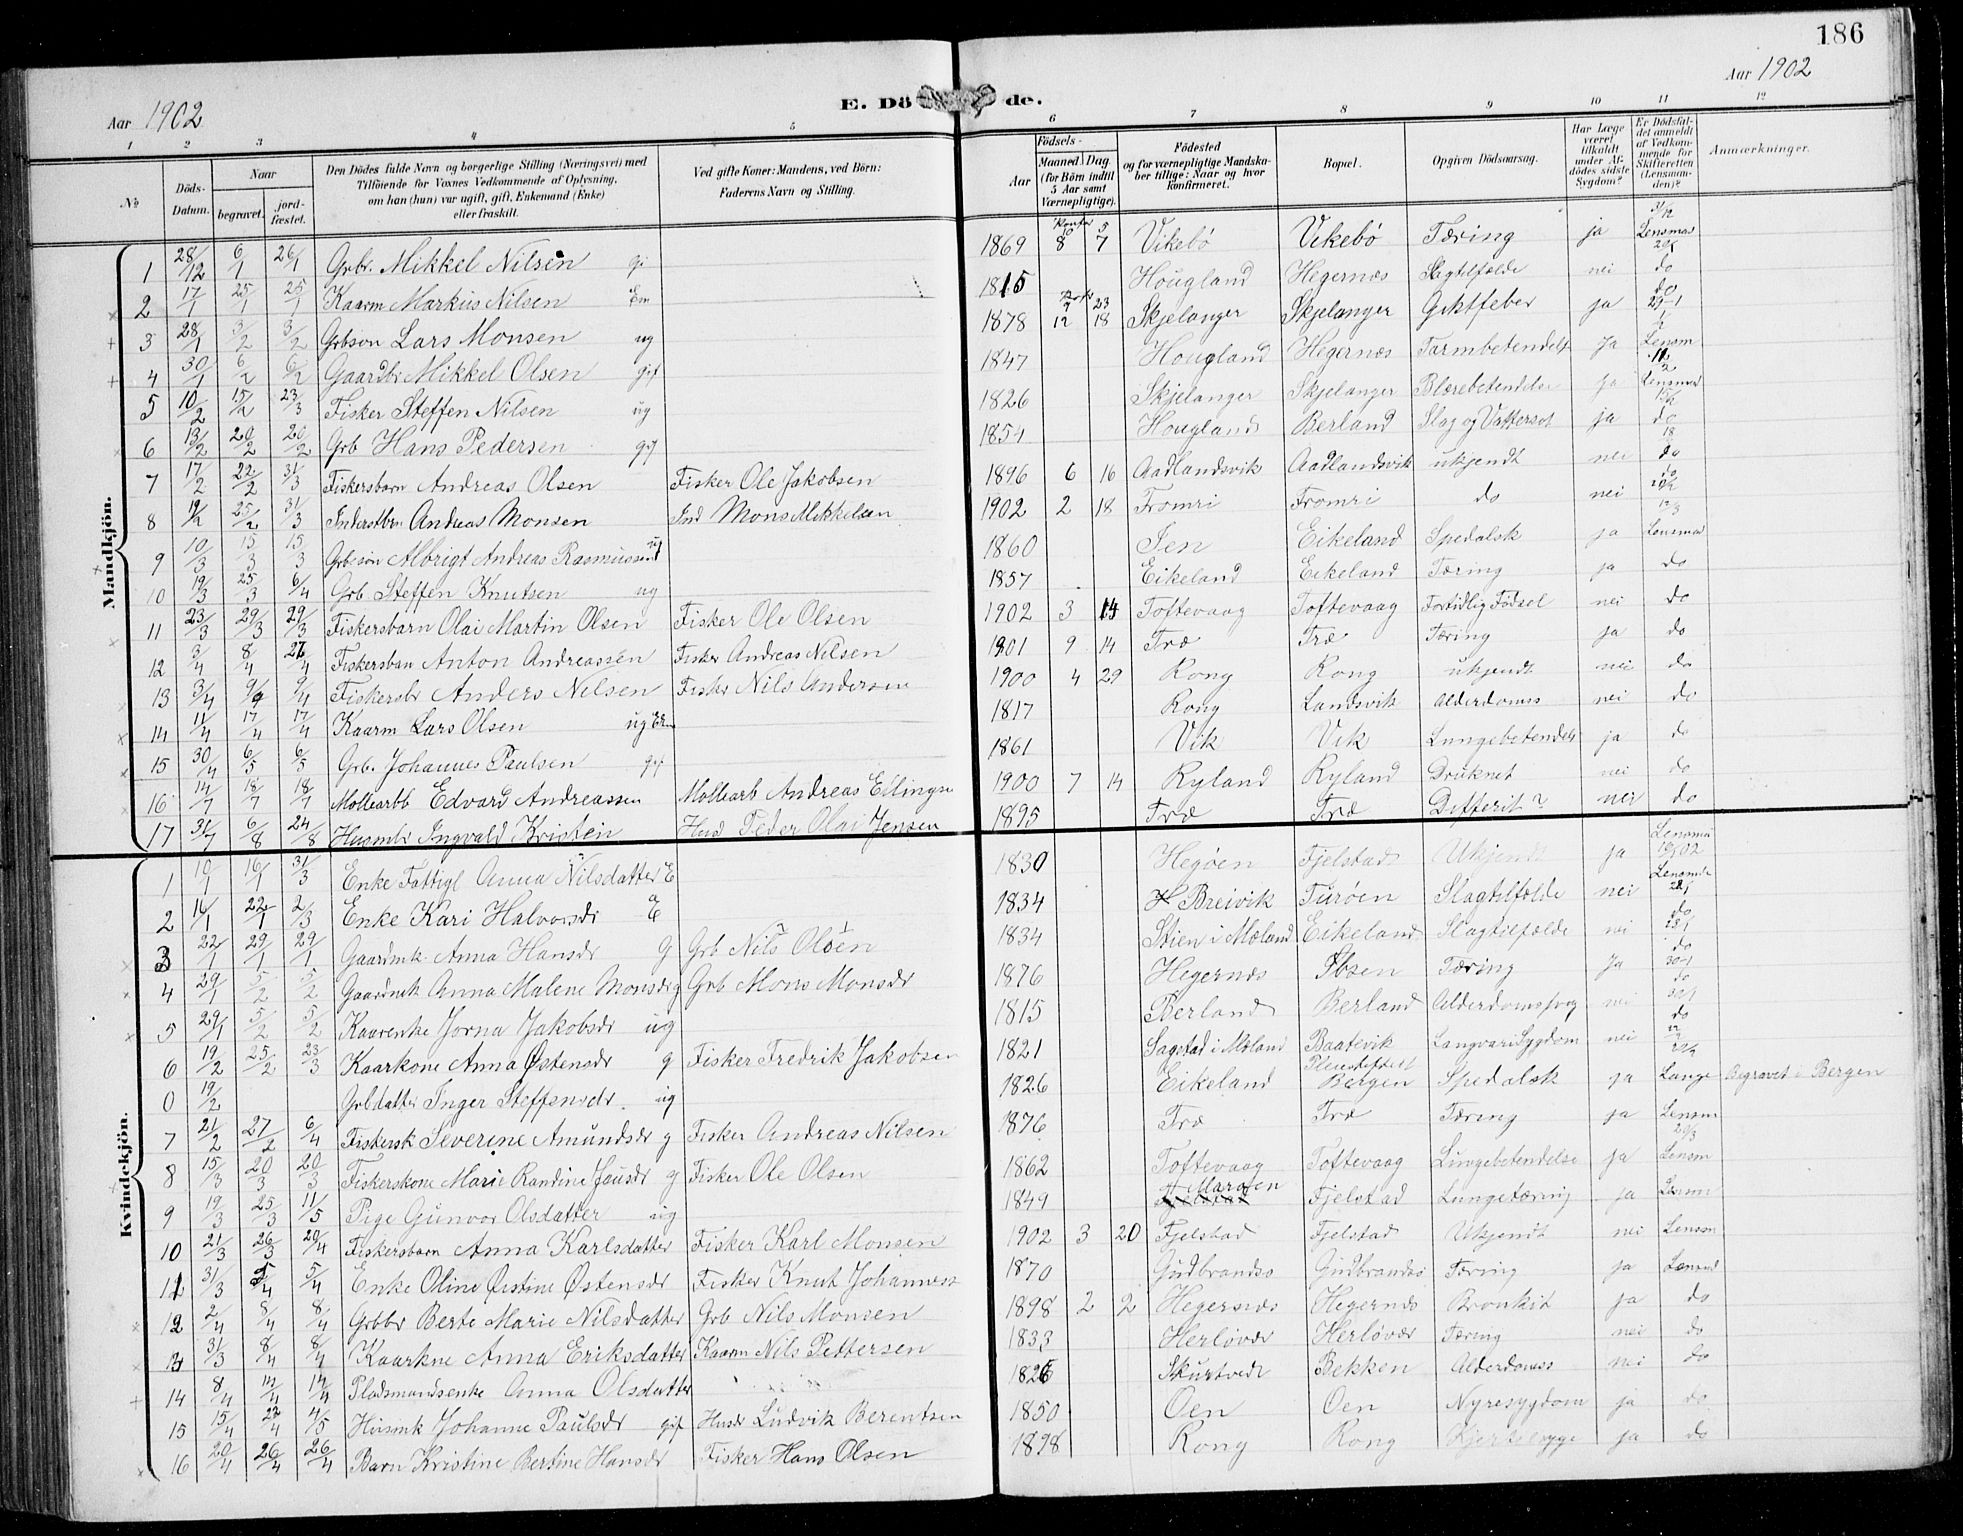 186
Aar 1902
E. Dö de.
Aar 1902
1 2 3 4 5 6 7 8 9 10 11 12
No
Döds-Datum.
Naar
begravet.
jord-fæstet.
Den Dödes fulde Navn og borgerlige Stilling (Næringsvei) med
Tilföiende for Voxnes Vedkommende af Oplysning,
om han (hun) var ugift, gift, Enkemand (Enke)
eller fraskilt.
Ved gifte Koner: Mandens, ved Börn:
Faderens Navn og Stilling.
Födsels-
Aar
Maaned. Dag.
(for Börn indtil
5 Aar samt
Værnepligtige).
Födested
og for værnepligtige Mandska-
ber tillige: Naar og hvor
konfirmeret.
Bopæl.
Opgiven Dödsaarsag.
Har Læge
været
tilkaldt
under Af-
dödes sidste
Sygdom?
Er Dödsfal-
det anmeldt
af Vedkom-
mende for
Skifteretten
(Lensman-
den)?
Anmærkninger.
Mandkjön.
1 28/12 6/1 26/1 Grbr. Mikkel Nilsen gi 1869 8 7 Vikebö Vikebö Tæring ja Lensmad
2 17/1 25/1 25/1 Kaarm Markus Nilsen Em 1815 Hougland Hegernæs Slagtilfælde nei do
3 28/1 3/2 3/2 Grbson Lars Monsen ug 1878 12 18 Skjelanger Skjelanger Giktfeber ja do
4 30/1 6/2 6/2 Gaardbr Mikkel Olsen gif 1847 Hougland Hegernæs Tarmbetendels ja Lensm
5 10/2 15/2 23/3 Fisker Steffen Nilsen ug 1826 Skjelanger Skjelanger Blærebetendelse ja Lensmad
6 13/2 20/2 20/2 Grb Hans Pedersen gif 1854 Hougland Berland Slag og Vattersot ja do
7 17/2 22/2 31/3 Fiskersbarn Andreas Olsen Fisker Ole Jakobsen 1896 6 16 Aadlandsvik Aadlandsvik ukjendt nei do
8 19/2 25/2 31/3 Inderstbn Andreas Monsen Ind Mons Mikkelsen 1902 2 18 Fromri Fromri do nei do
9 10/3 15/3 15/3 Grbsön Albrigt Andreas Rasmussen ug 1860 Jen Eikeland Spedalsk ja Lensmad
10 19/3 25/3 6/4 Grb. Steffen Knutsen ug 1857 Eikeland Eikeland Tæring ja do
11 23/3 29/3 29/3 Fiskersbarn Olai Martin Olsen Fisker Ole Olsen 1902 3 14 Toftevaag Toftevaag Fortidlig Födsel nei do
12 3/4 8/4 26/4 Fiskersban Anton Andreassen Fisker Andreas Nilsen 1901 9 14 Træ Træ Tæring ja do
13 3/4 9/4 9/4 Fiskersbr Anders Nilsen Fisker Nils Andersen 1900 4 29 Rong Rong ukjendt nei do
14 11/4 17/4 17/4 Kaarm Lars Olsen ug Em 1817 Rong Landsvik Alderdomss nei do
15 30/4 6/5 6/5 Grb. Johannes Paulsen gif 1861 Vik Vik Lungebetendels ja do
16 14/7 18/7 18/7 Mollearbb Edvard Andreassen Mollearb Andreas Ellingsn 1900 7 14 Ryland Ryland Druknet nei do
17 31/7 6/8 24/8 Husmbr Ingvald Kristen Husd Peder Olai Jensen 1895 Træ Træ Difterit? nei do
Kvindekjön.
1 10/1 16/1 31/3 Enke Fattigl Anna Nilsdatter E 1830 Hegöen Fjelstad Ukjendt ja Lensma
2 16/1 22/1 2/3 Enke Kari Halvorsdr E 1834 Breivik Turöen Slagtilfælde nei Lensmd
3 22/1 29/1 29/1 Gaardmk Anna Hansdr g Grb Nils Olsen 1834 Stien i Mæland Eikeland Slagtilfælde nei do
4 29/1 5/2 5/2 Gaardmk Anna Malene Monsdr g Grb Mons Monsdr 1876 Hegernæs Ibsen Tæring Ja do
5 29/1 5/2 5/2 Kaarenke Jorna Jakobsdr ug 1815 Berland Berland Alderdomssvag nei do
6 19/2 25/2 23/3 Kaarkone Anna Østensdr g Fisker Fredrik Jakobsen 1821 Sagstad i Mæland Baatevik Langvari Sygdom nei
0 19/2 Grbdatter Inger Steffensdr. ug 1826 Eikeland Pleiestiftelst Bergen Spedalsk ja Lange Begravet i Bergen
7 21/2 27/2 6/4 Fiskersk Severine Amundsdr g Fisker Andreas Nilsen 1876 Træ Træ Tæring ja Lensm
8 15/3 20/3 20/3 Fiskerskone Marie Randine Jensdr g Fisker Ole Olsen 1862 Toftevaag Toftevaag Lungebetendelse ja Lensm
9 19/3 25/3 11/5 Pige Gunvor Olsdatter ug 1849 Maroen Fjelstad Lungetæring ja Lensm
10 21/3 26/3 20/4 Fiskersbarn Anna Karlsdatter Fisker Karl Monsen 1902 3 20 Fjelstad Fjelstad Ukjendt nei Lensm
11 31/3 5/4 5/4 Enke Oline Østine Østensdr Fisker Knut Johanness 1870 Gudbrandsö Gudbrandsö Tæring ja Lensmd
12 2/4 8/4 8/4 Grbbr Berte Marie Nilsdatter Grb Nils Monsen 1898 2 2 Hegernæs Hegernæs Bronkit ja do
13 31/3 8/4 8/4 Kaarkne Anna Eriksdatter Kaarm Nils Pettersen 1833 Herlövær Herlövær Tæring nei do
14 8/4 14/4 14/4 Pladsmandsenke Anna Olsdatter 1826 Skurtvedt Bekken Alderdomss nei do
15 15/4 22/4 4/5 Husmk Johanne Paulsdr gif Husdr Ludvik Berentsen 1850 Oen Oen Nyresygdom ja do
16 20/4 26/4 26/4 Barn Kristine Bertine Hansdr Fisker Hans Olsen 1898 Rong Rong Kjertelsyge ja do